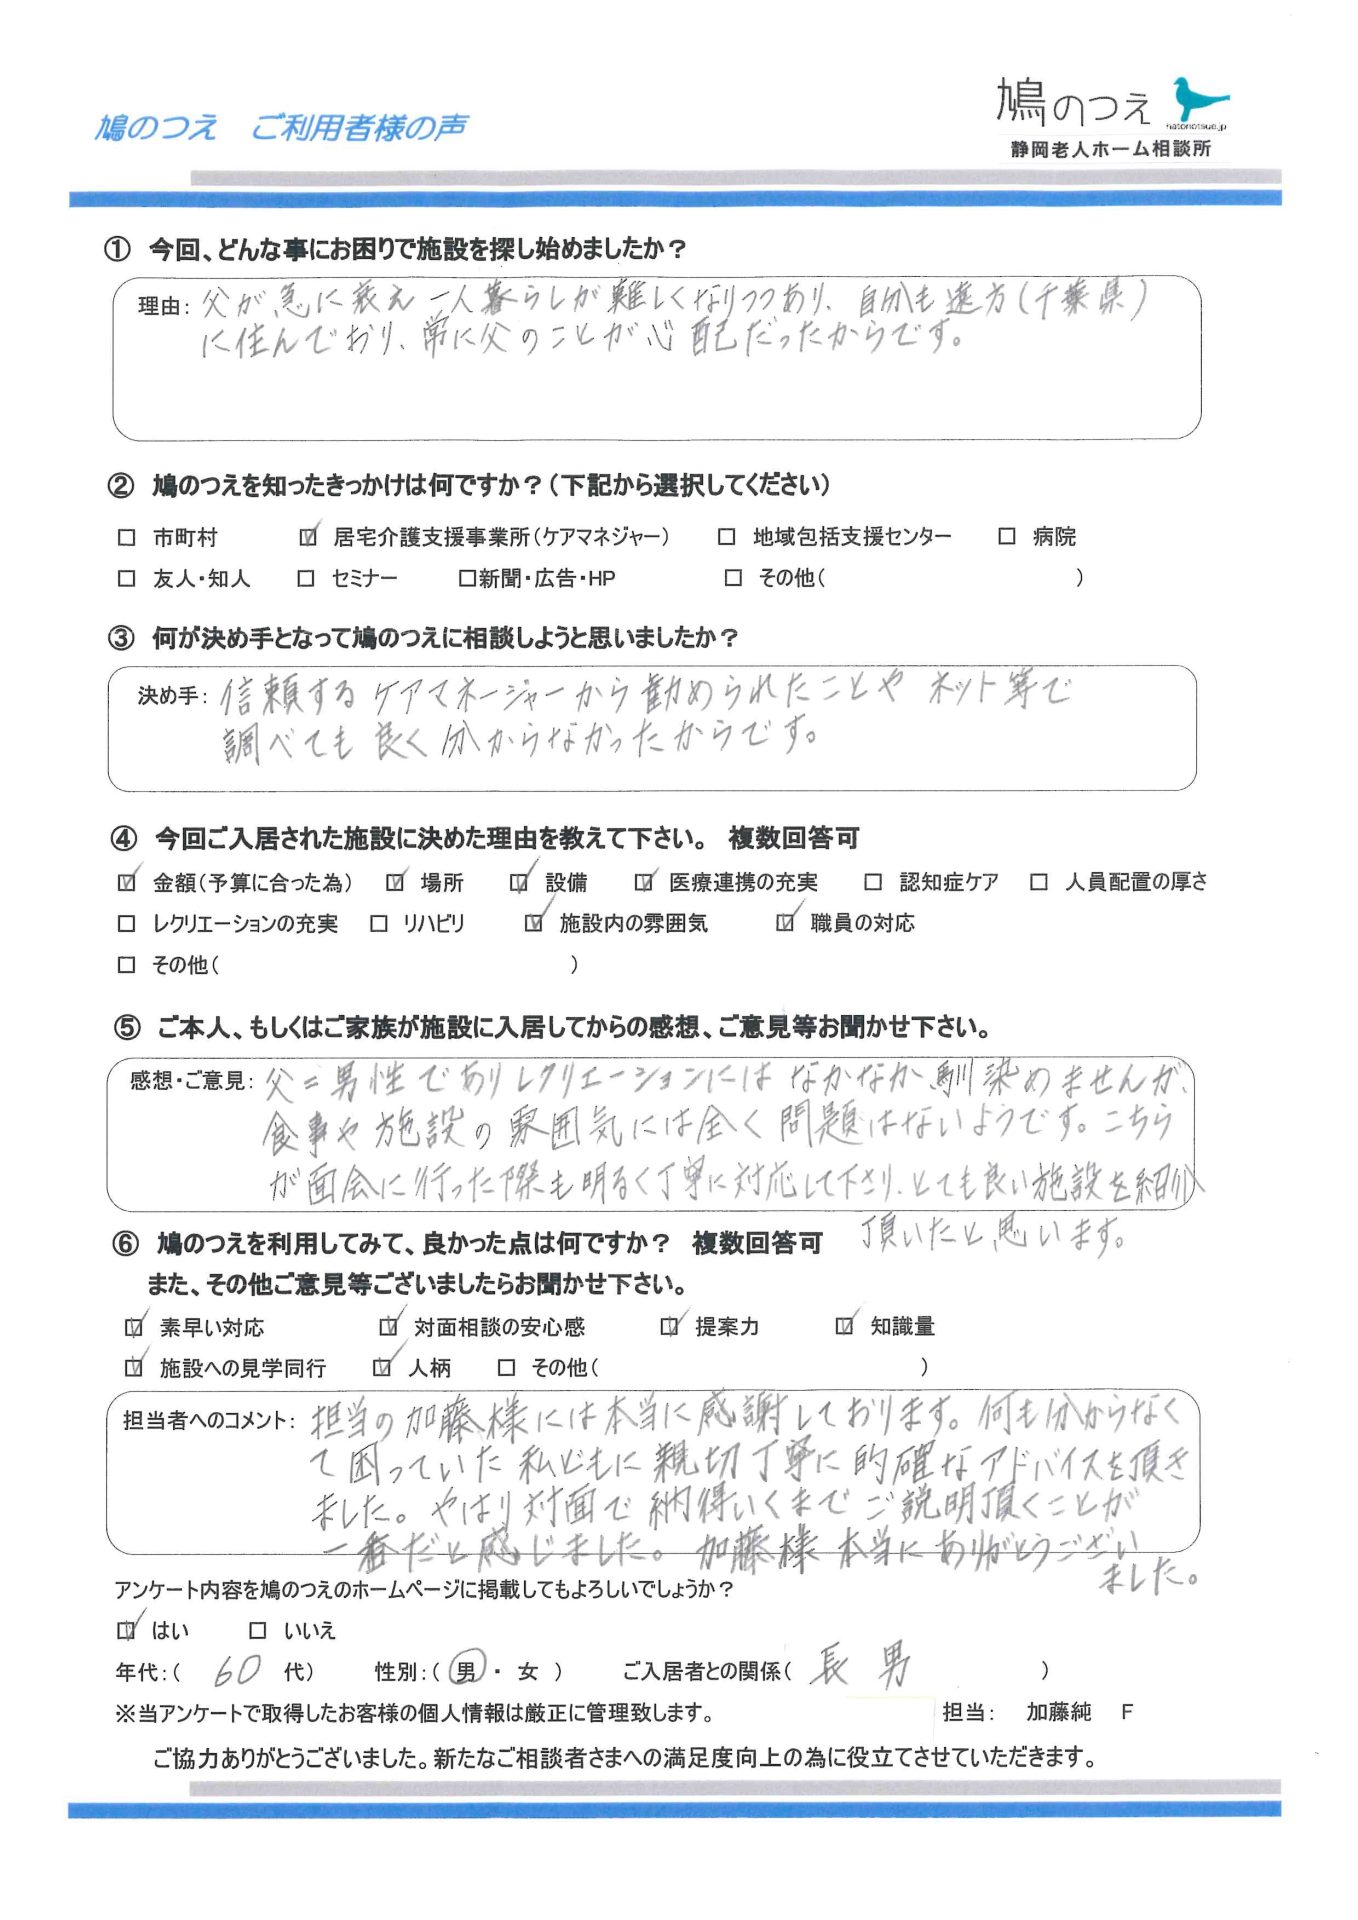 鳩のつえ
hatonotsue.jp
静岡老人ホーム相談所
鳩のつえ　ご利用者様の声
① 今回、どんな事にお困りで施設を探し始めましたか？
理由：父が急に衰え一人暮らしが難しくなりつつあり、自分も遠方（千葉県）
に住んでおり、常に父のことが心配だったからです。
② 鳩のつえを知ったきっかけは何ですか？（下記から選択してください）
□ 市町村　☑ 居宅介護支援事業所（ケアマネジャー）　□ 地域包括支援センター　□ 病院
□ 友人・知人　□ セミナー　□新聞・広告・HP　□ その他（　）
③ 何が決め手となって鳩のつえに相談しようと思いましたか？
決め手：信頼するケアマネージャーから勧められたことや ネット等で
調べても良く分からなかったからです。
④ 今回ご入居された施設に決めた理由を教えて下さい。 複数回答可
☑ 金額（予算に合った為）　☑ 場所　☑ 設備　☑ 医療連携の充実　□ 認知症ケア　□ 人員配置の厚さ
□ レクリエーションの充実　□ リハビリ　☑ 施設内の雰囲気　☑ 職員の対応
□ その他（　）
⑤ ご本人、もしくはご家族が施設に入居してからの感想、ご意見等お聞かせ下さい。
感想・ご意見：父＝男性でありレクリエーションにはなかなか馴染めませんが、
食事や施設の雰囲気には全く問題はないようです。こちら
が面会に行った際も明るく丁寧に対応して下さり、とても良い施設を紹介
頂いたと思います。
⑥ 鳩のつえを利用してみて、良かった点は何ですか？ 複数回答可
また、その他ご意見等ございましたらお聞かせ下さい。
☑ 素早い対応　☑ 対面相談の安心感　☑ 提案力　☑ 知識量
☑ 施設への見学同行　☑ 人柄　□ その他（　）
担当者へのコメント：担当の加藤様には本当に感謝しております。何も分からなく
て困っていた私どもに親切丁寧に的確なアドバイスを頂き
ました。やはり対面で納得いくまでご説明頂くことが
一番だと感じました。加藤様本当にありがとうござい
ました。
アンケート内容を鳩のつえのホームページに掲載してもよろしいでしょうか？
☑ はい　□ いいえ
年代：（ 60 代）　性別：（ 男 ・ 女 ）　ご入居者との関係（ 長男 ）
※当アンケートで取得したお客様の個人情報は厳正に管理致します。　担当： 加藤純 F
ご協力ありがとうございました。新たなご相談者さまへの満足度向上の為に役立てさせていただきます。